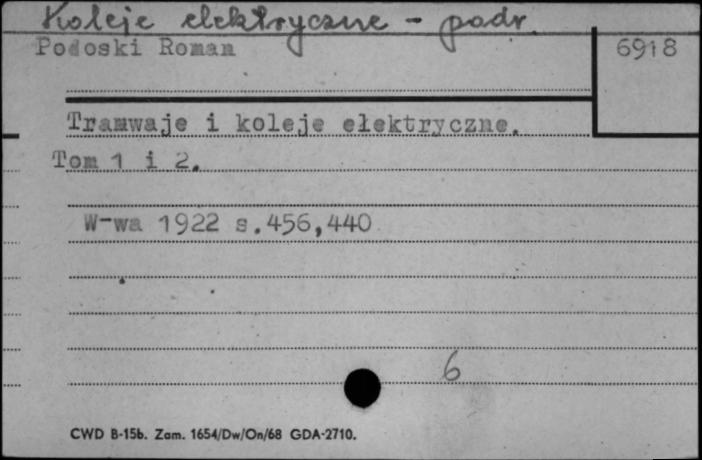 Koleje elektryczne - podr.
Podoski Roman
6918
Tramwaje i koleje elektryczne.
Tom 1 i 2.
W-wa 1922 s.456,440
6
CWD B-15b. Zam. 1654/Dw/On/68 GDA-2710.